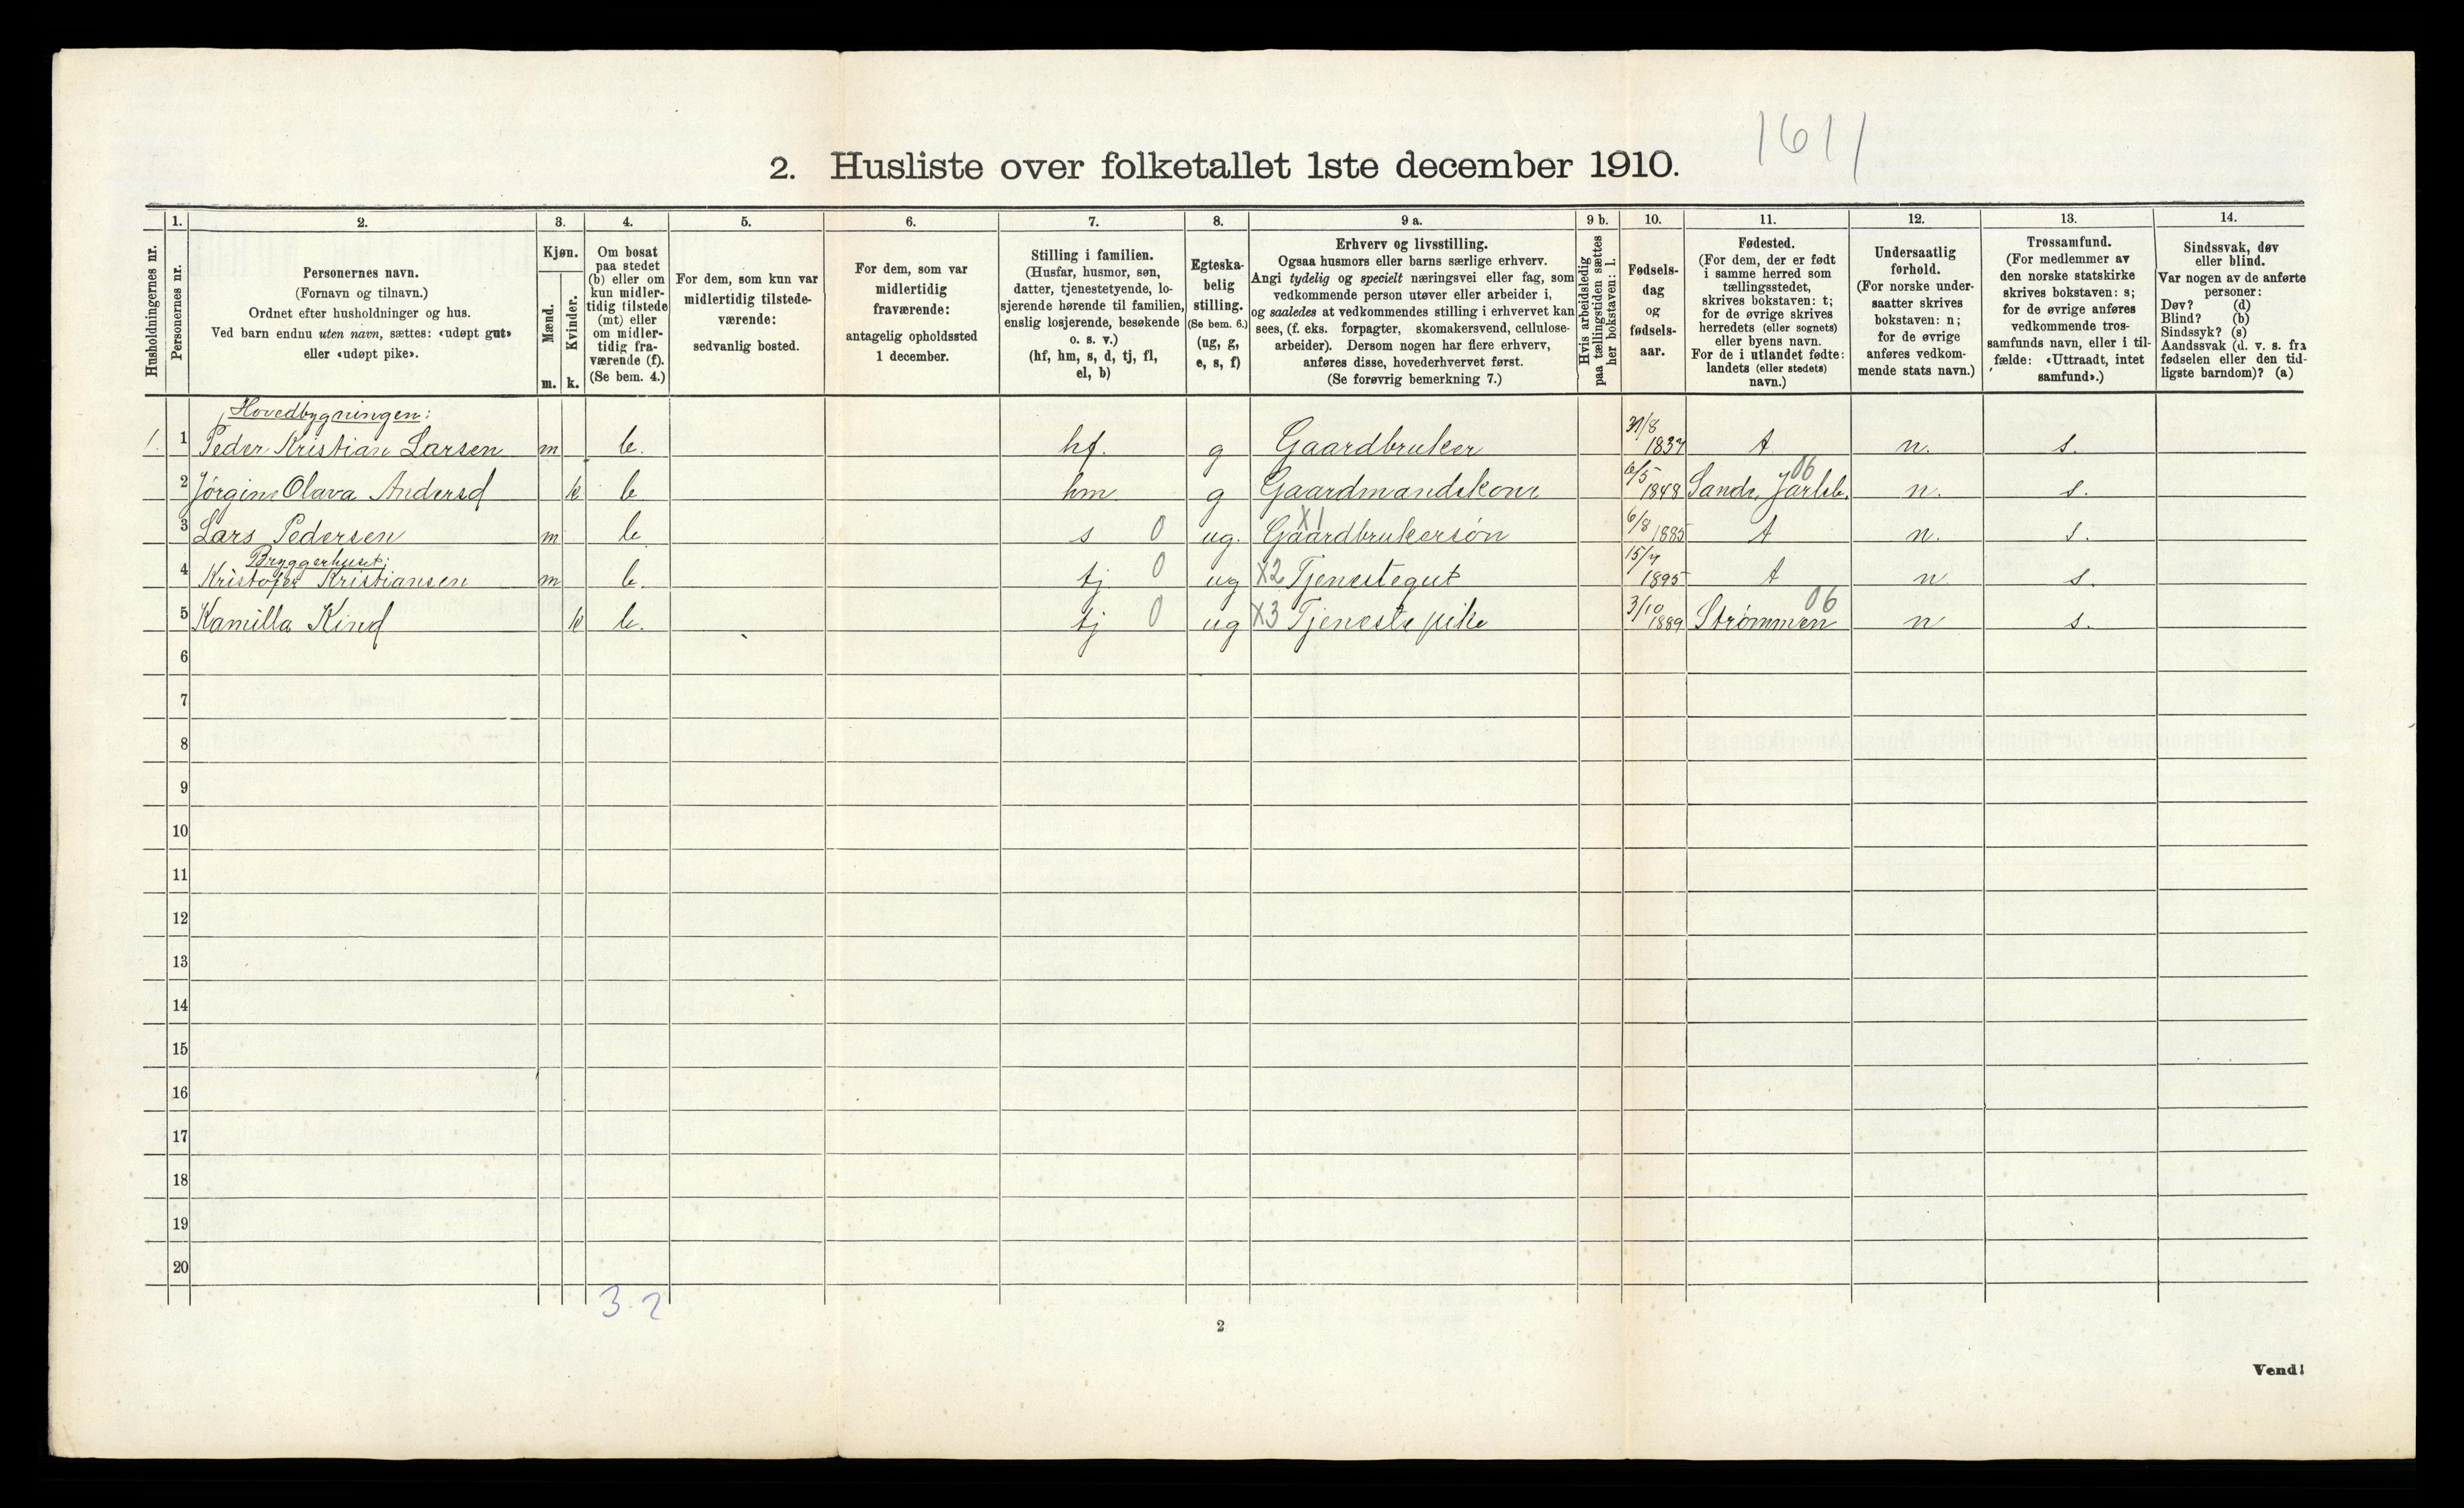 1611
2. Husliste over folketallet 1ste december 1910.
Husholdningernes nr.
1. Personernes nr.
2.
Personernes navn.
(Fornavn og tilnavn.)
Ordnet efter husholdninger og hus.
Ved barn endnu uten navn, sættes: «udøpt gut»
eller «udøpt pike».
3.
Kjøn.
Mænd.
Kvinder.
m. k.
4.
Om bosat
paa stedet
(b) eller om
kun midler-
tidig tilstede
(mt) eller
om midler-
tidig fra-
værende (f).
(Se bem. 4.)
5.
For dem, som kun var
midlertidig tilstede-
værende:
sedvanlig bosted.
6.
For dem, som var
midlertidig
fraværende:
antagelig opholdssted
1 december.
7.
Stilling i familien.
(Husfar, husmor, søn,
datter, tjenestetyende, lo-
sjerende hørende til familien,
enslig losjerende, besøkende
o. s. v.)
(hf, hm, s, d, tj, fl,
el, b)
8.
Egteska-
belig
stilling.
(Se bem. 6.)
(ug, g,
e, s, f)
9 a.
Erhverv og livsstilling.
Ogsaa husmors eller barns særlige erhverv.
Angi tydelig og specielt næringsvei eller fag, som
vedkommende person utøver eller arbeider i,
og saaledes at vedkommendes stilling i erhvervet kan
sees, (f. eks. forpagter, skomakersvend, cellulose-
arbeider). Dersom nogen har flere erhverv,
anføres disse, hovederhvervet først.
(Se forøvrig bemerkning 7.)
9 b.
Hvis arbeidsledig
paa tællingstiden sættes
her bokstaven: l.
10.
Fødsels-
dag
og
fødsels-
aar.
11.
Fødested.
(For dem, der er født
i samme herred som
tællingsstedet,
skrives bokstaven: t;
for de øvrige skrives
herredets (eller sognets)
eller byens navn.
For de i utlandet fødte:
landets (eller stedets)
navn.)
12.
Undersaatlig
forhold.
(For norske under-
saatter skrives
bokstaven: n;
for de øvrige
anføres vedkom-
mende stats navn.)
13.
Trossamfund.
(For medlemmer av
den norske statskirke
skrives bokstaven: s;
for de øvrige anføres
vedkommende tros-
samfunds navn, eller i til-
fælde: «Uttraadt, intet
samfund».)
14.
Sindssvak, døv
eller blind.
Var nogen av de anførte
personer:
Døv? (d)
Blind? (b)
Sindssyk? (s)
Aandssvak (d. v. s. fra
fødselen eller den tid-
ligste barndom)? (a)
Hovedbygningen:
1. 1 Peder Kristian Larsen m b. hf. g Gaardbruker 31/8 1837 t n. s.
2 Jørgine Olava Andersd k b hm g Gaardmandskone 6/5 1848 Sande, Jarlsb. 06 n. s.
3 Lars Pedersen m b s 0 ug. X1 Gaardbrukersøn 6/8 1885 t n. s.
Bryggerhuset:
4 Kristofer Kristiansen m b. tj 0 ug X2 Tjenestegut 15/7 1895 t n s.
5 Kamilla Kind k b. tj 0 ug X3 Tjeneste pike 3/10 1889 Strømmen 06 n s.
6
7
8
9
10
11
12
13
14
15
16
17
18
19
20
3 2
2
Vend!